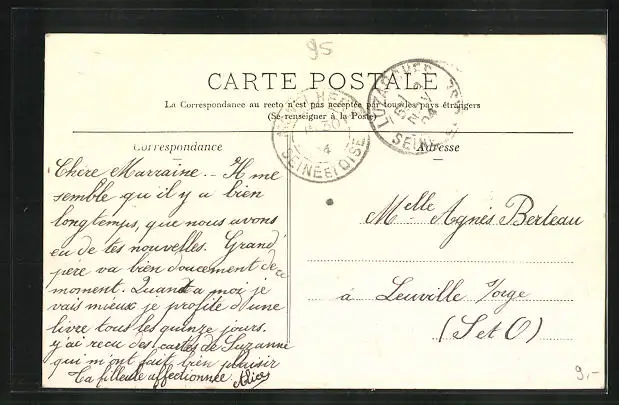 95
CARTE POSTALE
La Correspondance au recto n'est pas acceptée par tous les pays étrangers
(Se renseigner à la Poste)
SEINE ET OISE
SEINE
Correspondance
Adresse
Chère Marraine. - Il me
semble qu'il y a bien
longtemps, que nous avons
eu de tes nouvelles. Grand
père va bien doucement de ce
moment. Quant a moi je
vais mieux je profite d'une
livre tous les quinze jours.
y'ai recu des cartes de Suzanne
qui m'ont fait bien plaisir
Ta filleule affectionnée. Alice
Melle Agnès Berteau
à Leuville s/orge
(S et O)
9,-